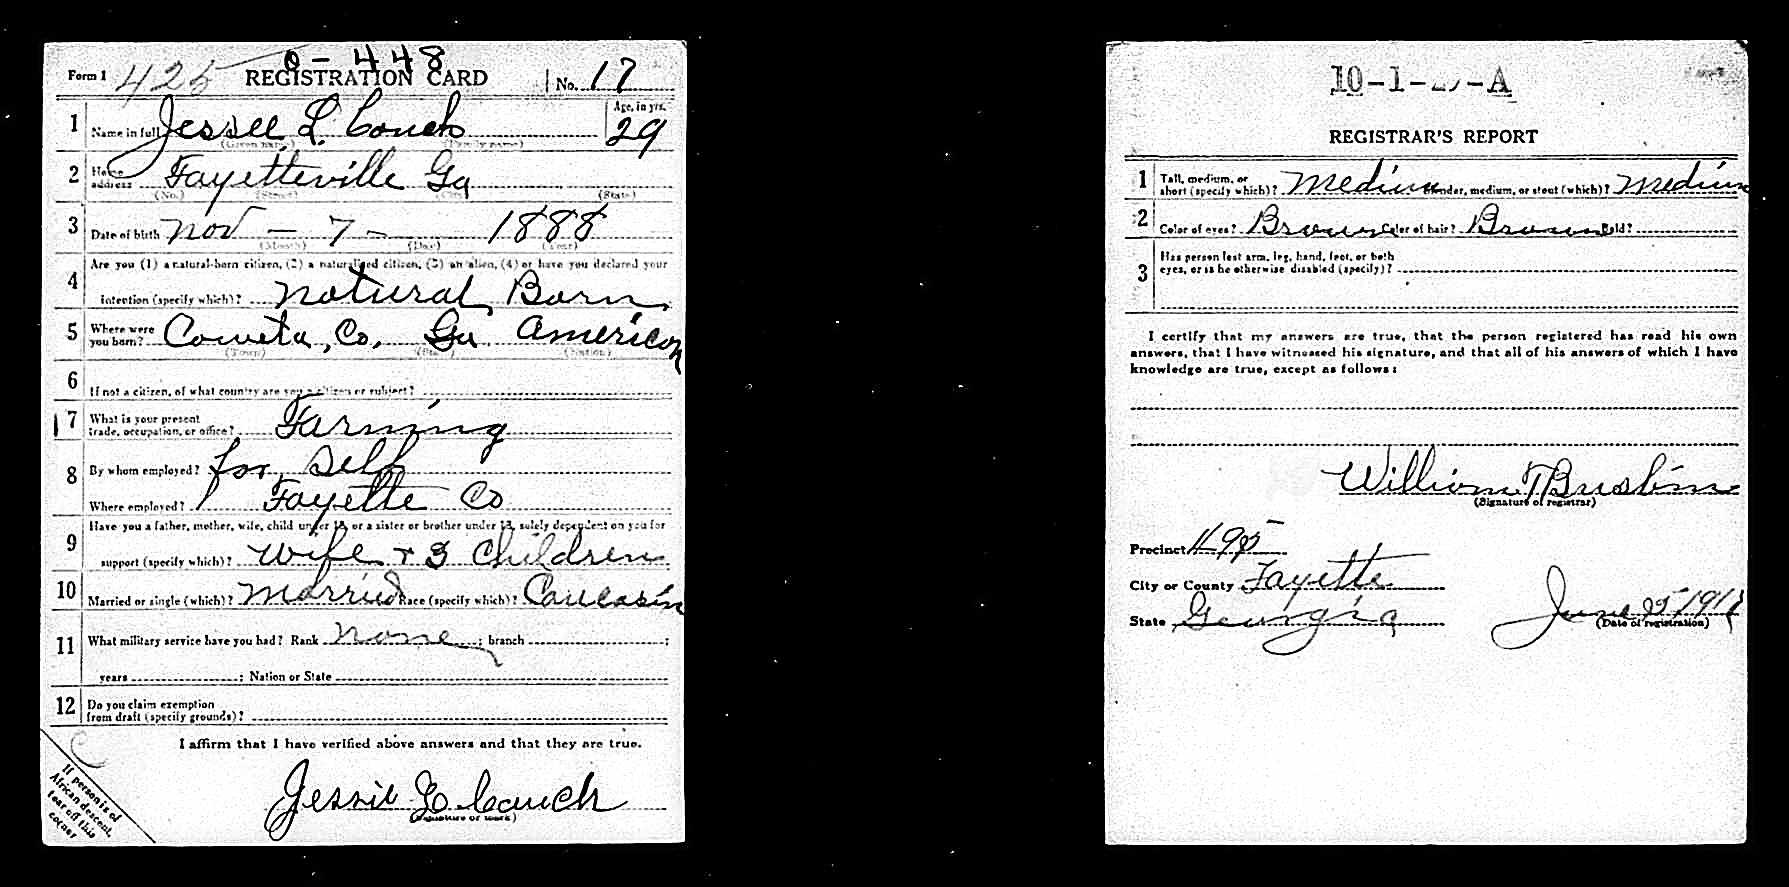 0-448
Form 1 425 REGISTRATION CARD No. 17
1 Name in full Jessee L. Couch Age, in yrs. 29
(Given name) (Family name)
2 Home address Fayetteville Ga
(No.) (Street) (City) (State)
3 Date of birth Nov - 7 - 1888
(Month) (Day) (Year)
4 Are you (1) a natural-born citizen, (2) a naturalized citizen, (3) an alien, (4) or have you declared your
intention (specify which)? Natural Born
5 Where were you born? Coweta, Co. Ga American
(Town) (State) (Nation)
6 If not a citizen, of what country are you a citizen or subject?
7 What is your present trade, occupation, or office? Farming
8 By whom employed? for Self
Where employed? Fayette Co
9 Have you a father, mother, wife, child under 12, or a sister or brother under 12, solely dependent on you for
support (specify which)? Wife + 3 Children
10 Married or single (which)? Married Race (specify which)? Caucasin
11 What military service have you had? Rank None ; branch ;
years ; Nation or State
12 Do you claim exemption
from draft (specify grounds)?
I affirm that I have verified above answers and that they are true.
Jessie L Couch
(Signature or mark)
If person is of
African descent,
tear off this
corner
C
REGISTRAR'S REPORT
1 Tall, medium, or
short (specify which)? Medium Slender, medium, or stout (which)? Medium
2 Color of eyes? Brown Color of hair? Brown Bald?
3 Has person lost arm, leg, hand, foot, or both
eyes, or is he otherwise disabled (specify)?
I certify that my answers are true, that the person registered has read his own
answers, that I have witnessed his signature, and that all of his answers of which I have
knowledge are true, except as follows:
William T
(Signature of registrar)
Precinct
City or County Fayette
State Georgia June 5 1917
(Date of registration)